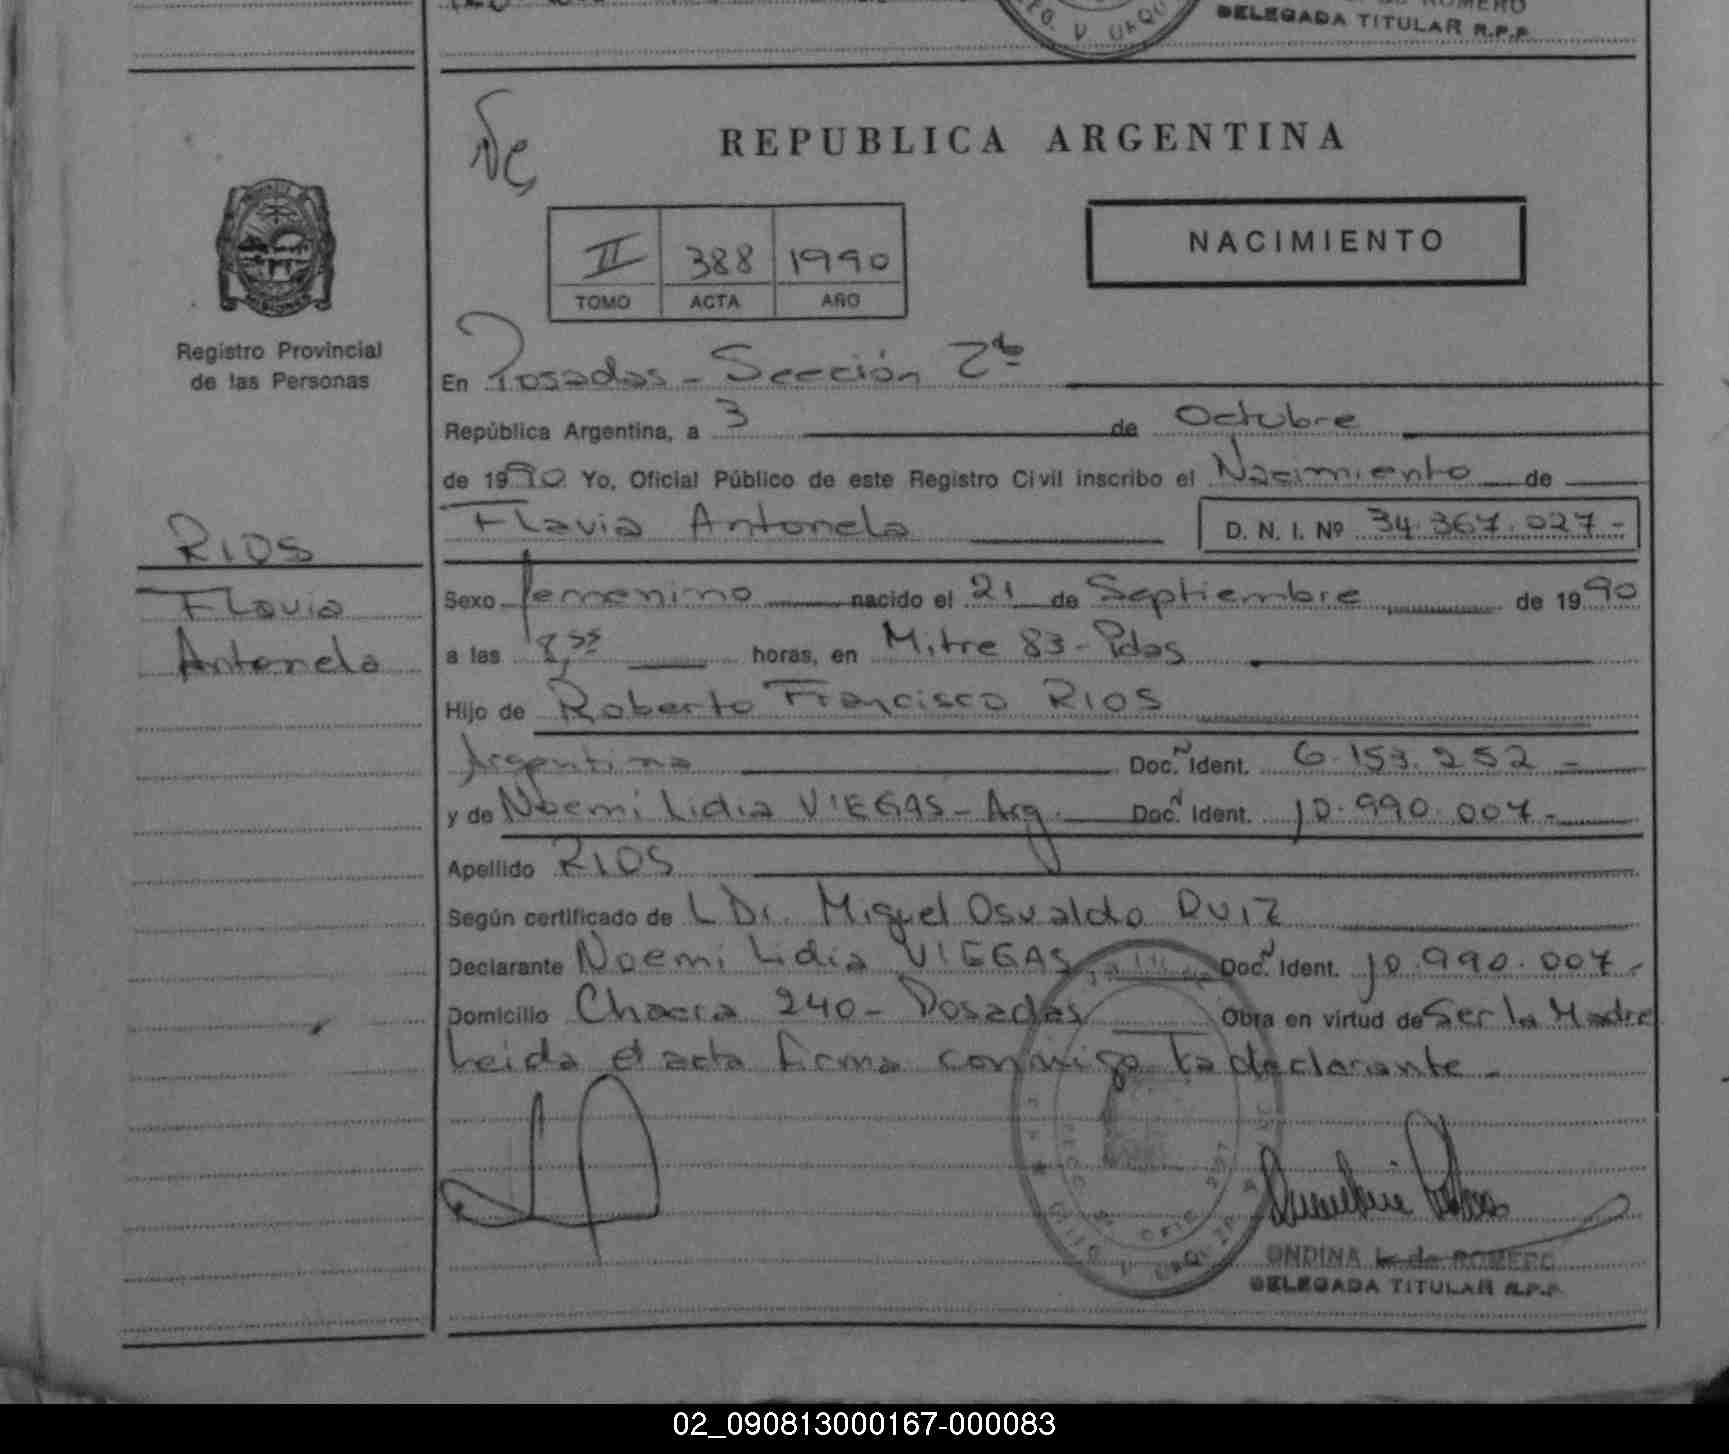 DELEGADA TITULAR R.P.P.
REPUBLICA ARGENTINA
NACIMIENTO
II 388 1990
TOMO ACTA AÑO
Registro Provincial
de las Personas
En Posadas - Sección 2da
República Argentina, a 3 de Octubre
de 1990 Yo, Oficial Público de este Registro Civil inscribo el Nacimiento de
Flavia Antonela D. N. I. Nº 34.367.027-
RIOS
Flavia
Antonela
Sexo femenino nacido el 21 de Septiembre de 1990
a las horas, en Mitre 83 - Pdas
Hijo de Roberto Francisco RIOS
Argentino Doc. Ident. 6.153.252 -
y de Noemi Lidia VIEGAS - Arg. Doc. Ident. 10.990.007 -
Apellido RIOS
Según certificado de L Dr. Miguel Osvaldo RUIZ
Declarante Noemi Lidia VIEGAS Doc. Ident. 10.990.007 -
Domicilio Chacra 240 - Posadas Obra en virtud de Ser la Madre
Leida el acta firma conmigo la declarante -
ONDINA L. de ROMERO
DELEGADA TITULAR R.P.P.
02_090813000167-000083